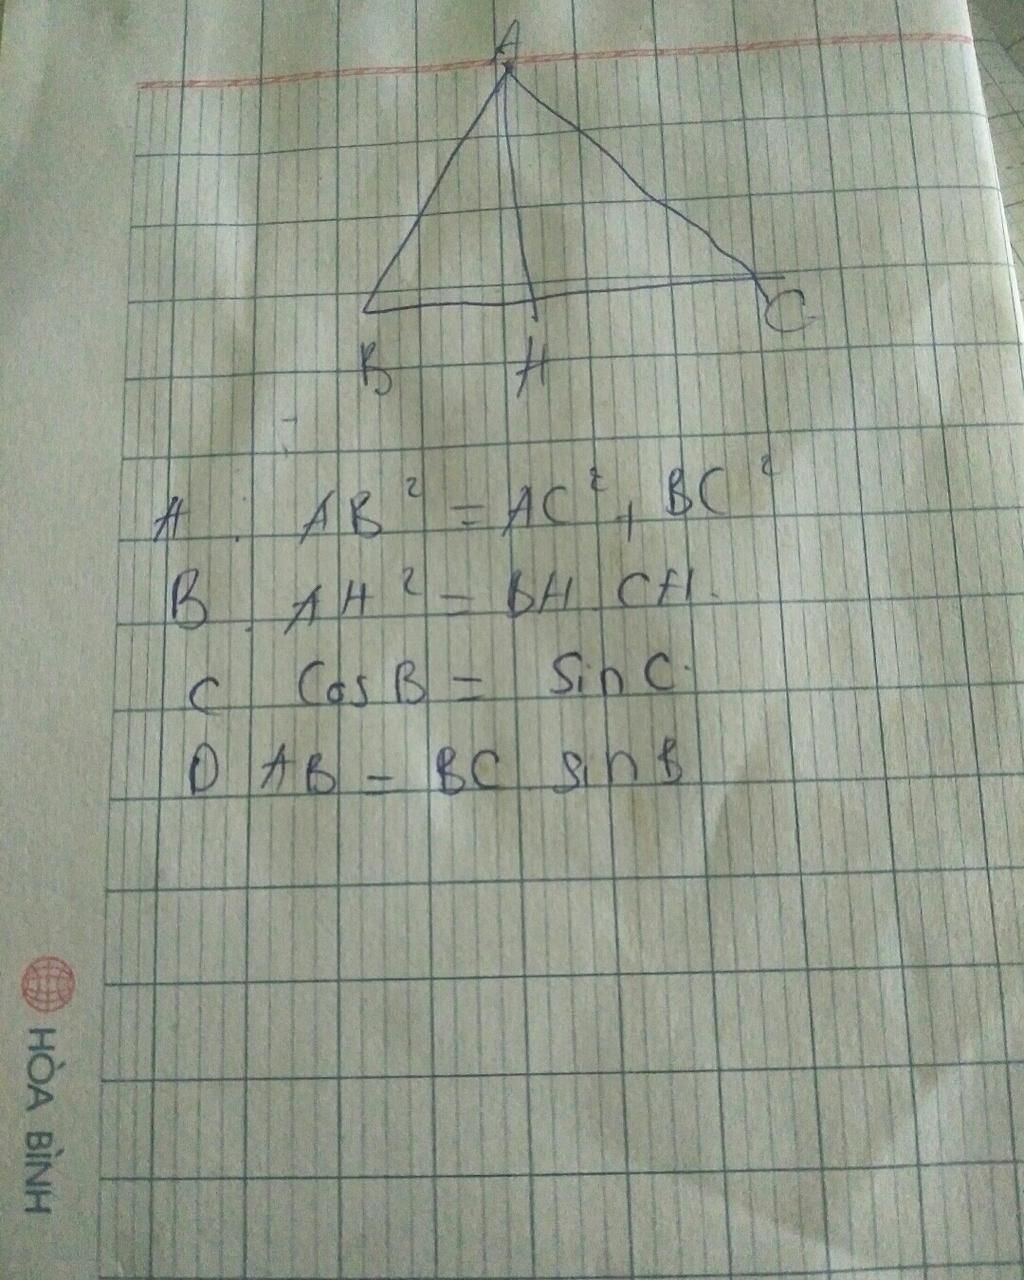 A
B H C
A. AB² = AC² + BC²
B. AH² = BH CH.
C Cos B = Sin C.
D AB = BC sin B
HÒA BÌNH